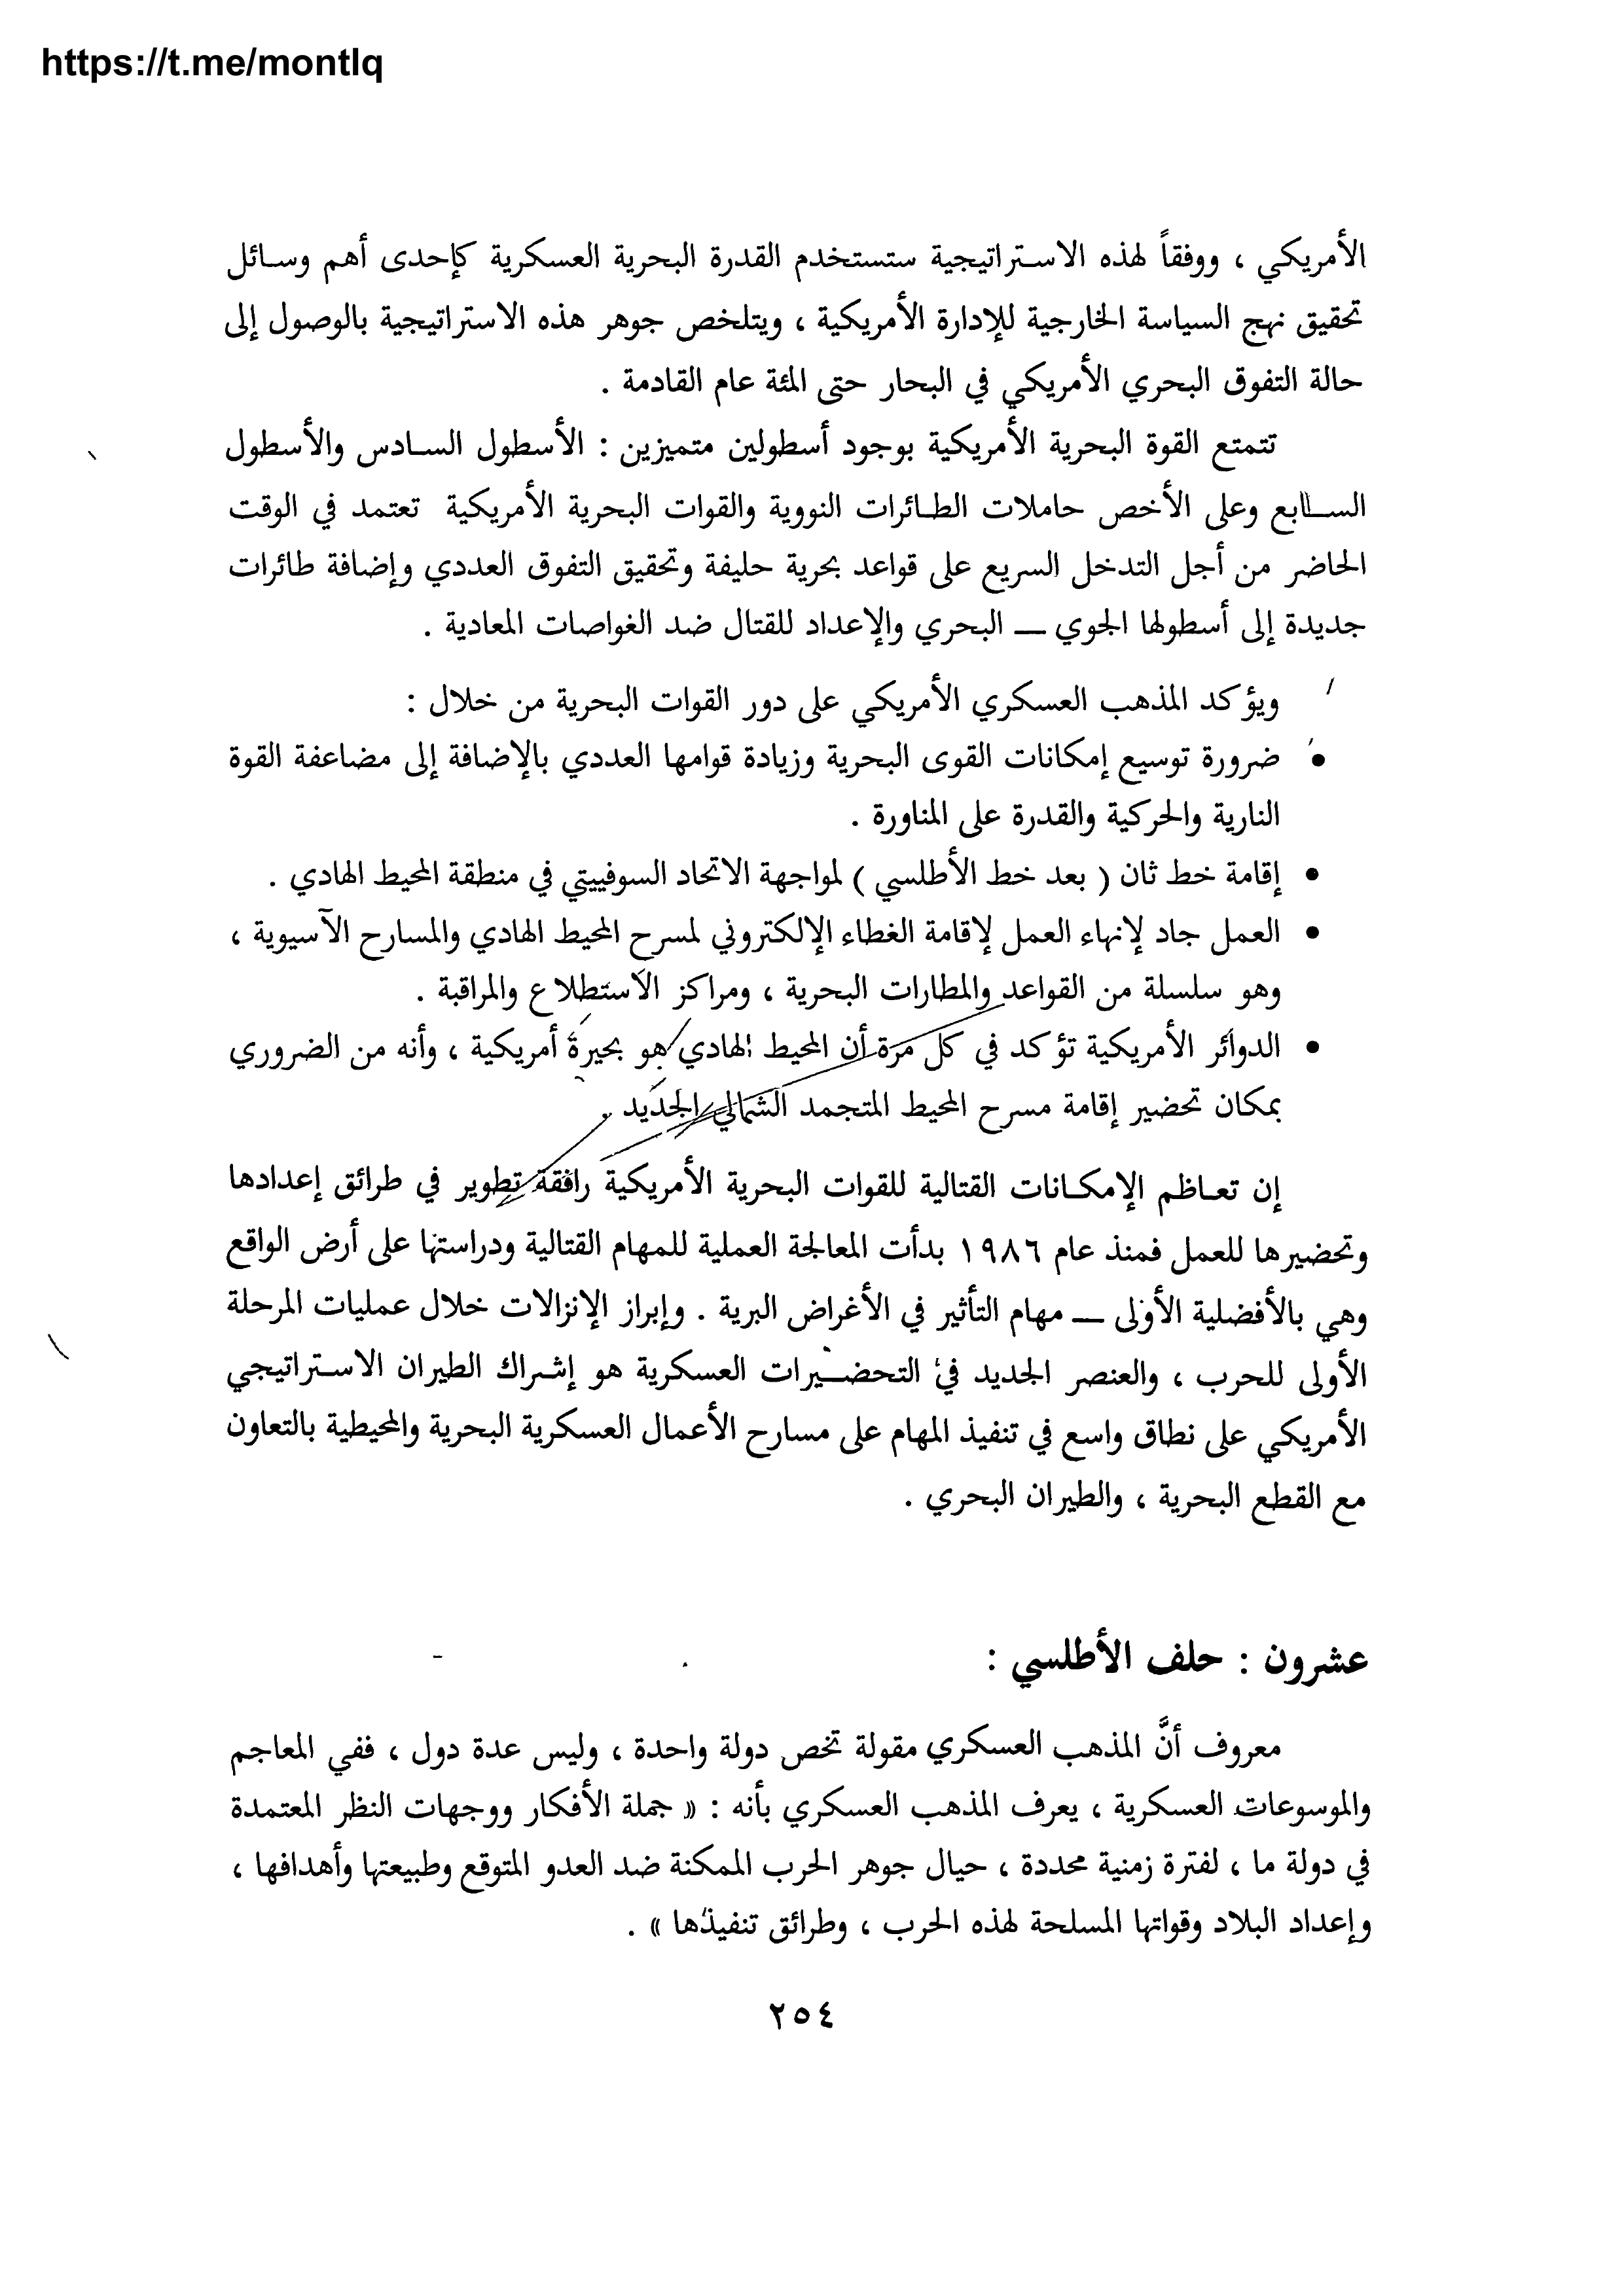 https://t.me/montlq
الأمريكي ، ووفقاً لهذه الاستراتيجية ستستخدم القدرة البحرية العسكرية كإحدى أهم وسائل
تحقيق نهج السياسة الخارجية للإدارة الأمريكية ، ويتلخص جوهر هذه الاستراتيجية بالوصول إلى
حالة التفوق البحري الأمريكي في البحار حتى المئة عام القادمة .
تتمتع القوة البحرية الأمريكية بوجود أسطولين متميزين : الأسطول السادس والأسطول
السابع وعلى الأخص حاملات الطائرات النووية والقوات البحرية الأمريكية تعتمد في الوقت
الحاضر من أجل التدخل السريع على قواعد بحرية حليفة وتحقيق التفوق العددي وإضافة طائرات
جديدة إلى أسطولها الجوي — البحري والإعداد للقتال ضد الغواصات المعادية .
ويؤكد المذهب العسكري الأمريكي على دور القوات البحرية من خلال :
• ضرورة توسيع إمكانات القوى البحرية وزيادة قوامها العددي بالإضافة إلى مضاعفة القوة
النارية والحركية والقدرة على المناورة .
• إقامة خط ثان ( بعد خط الأطلسي ) لمواجهة الاتحاد السوفييتي في منطقة المحيط الهادي .
• العمل جاد لإنهاء العمل لإقامة الغطاء الإلكتروني لمسرح المحيط الهادي والمسارح الآسيوية ،
وهو سلسلة من القواعد والمطارات البحرية ، ومراكز الاستطلاع والمراقبة .
• الدوائر الأمريكية تؤكد في كل مرة أن المحيط الهادي هو بحيرة أمريكية ، وأنه من الضروري
بمكان تحضير إقامة مسرح المحيط المتجمد الشمالي الجديد .
إن تعاظم الإمكانات القتالية للقوات البحرية الأمريكية رافقة تطوير في طرائق إعدادها
وتحضيرها للعمل فمنذ عام ١٩٨٦ بدأت المعالجة العملية للمهام القتالية ودراستها على أرض الواقع
وهي بالأفضلية الأولى — مهام التأثير في الأغراض البرية . وإبراز الإنزالات خلال عمليات المرحلة
الأولى للحرب ، والعنصر الجديد في التحضيرات العسكرية هو إشراك الطيران الاستراتيجي
الأمريكي على نطاق واسع في تنفيذ المهام على مسارح الأعمال العسكرية البحرية والمحيطية بالتعاون
مع القطع البحرية ، والطيران البحري .
عشرون : حلف الأطلسي :
معروف أنَّ المذهب العسكري مقولة تخص دولة واحدة ، وليس عدة دول ، ففي المعاجم
والموسوعات العسكرية ، يعرف المذهب العسكري بأنه : « جملة الأفكار ووجهات النظر المعتمدة
في دولة ما ، لفترة زمنية محددة ، حيال جوهر الحرب الممكنة ضد العدو المتوقع وطبيعتها وأهدافها ،
وإعداد البلاد وقواتها المسلحة لهذه الحرب ، وطرائق تنفيذها » .
٢٥٤